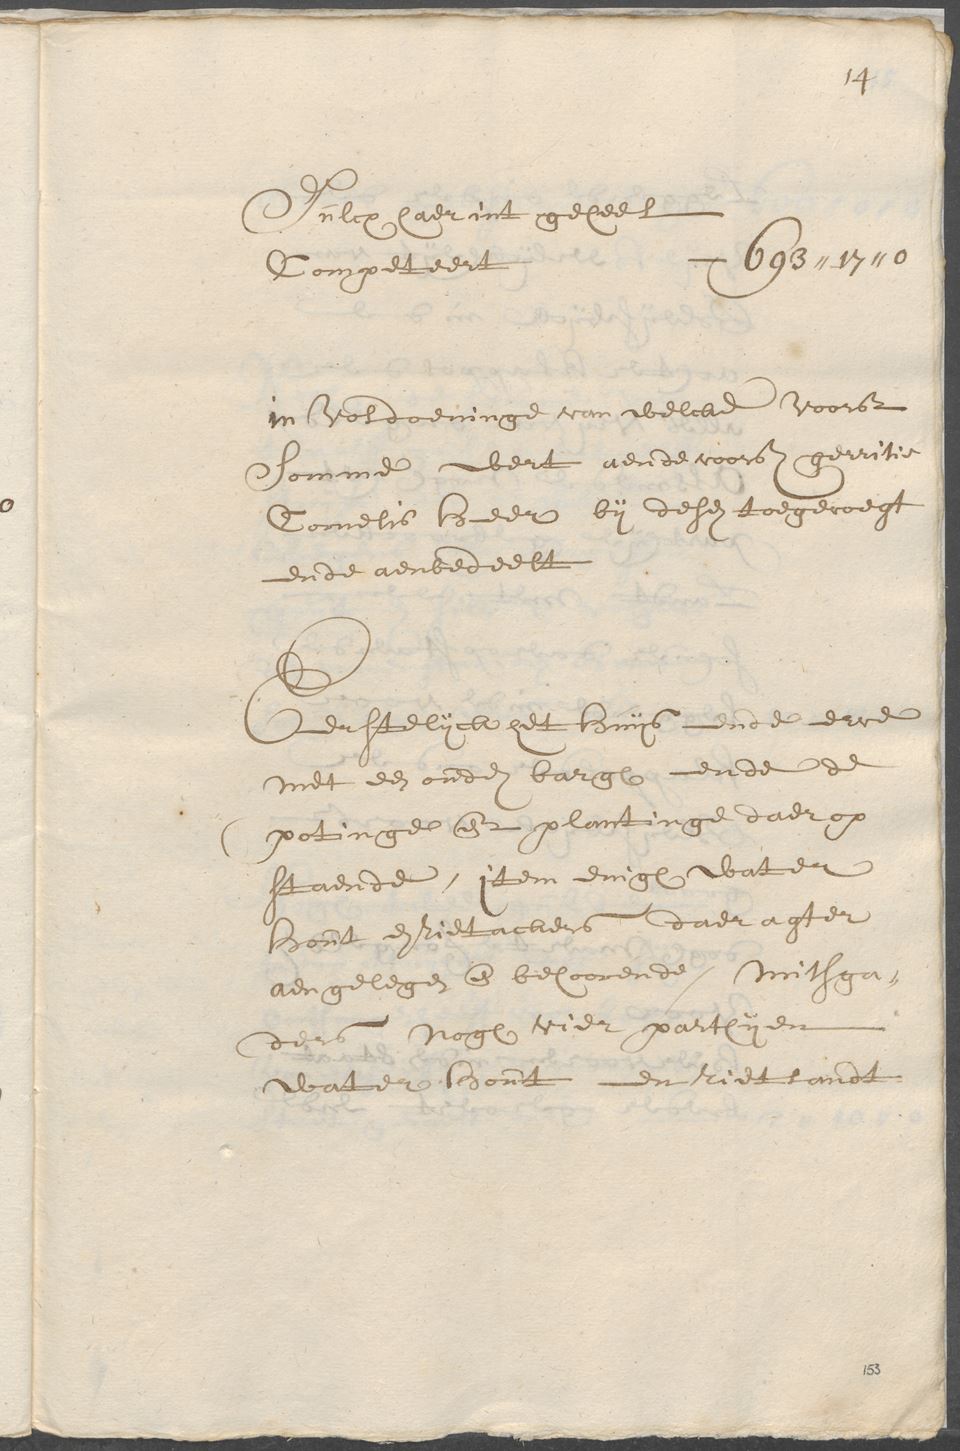 14
Sulcx haer int geheel
Competeert — 693 " 17 " 0
in voldoeninge van welcke voorsz
Somme wert aende voorsz gerritie
Cornelis Beer bij desen toegevoegt
ende aenbedeelt
Eerstelijck het huijs ende erve
met een ouden bargh ende de
potinge en plantinge daer op
staende, item enigh water
hout en Rietackers daer agter
aengelegen en behoorende, mitsga„
ders nogh vier partijen
water hout en rietlandt
0
153